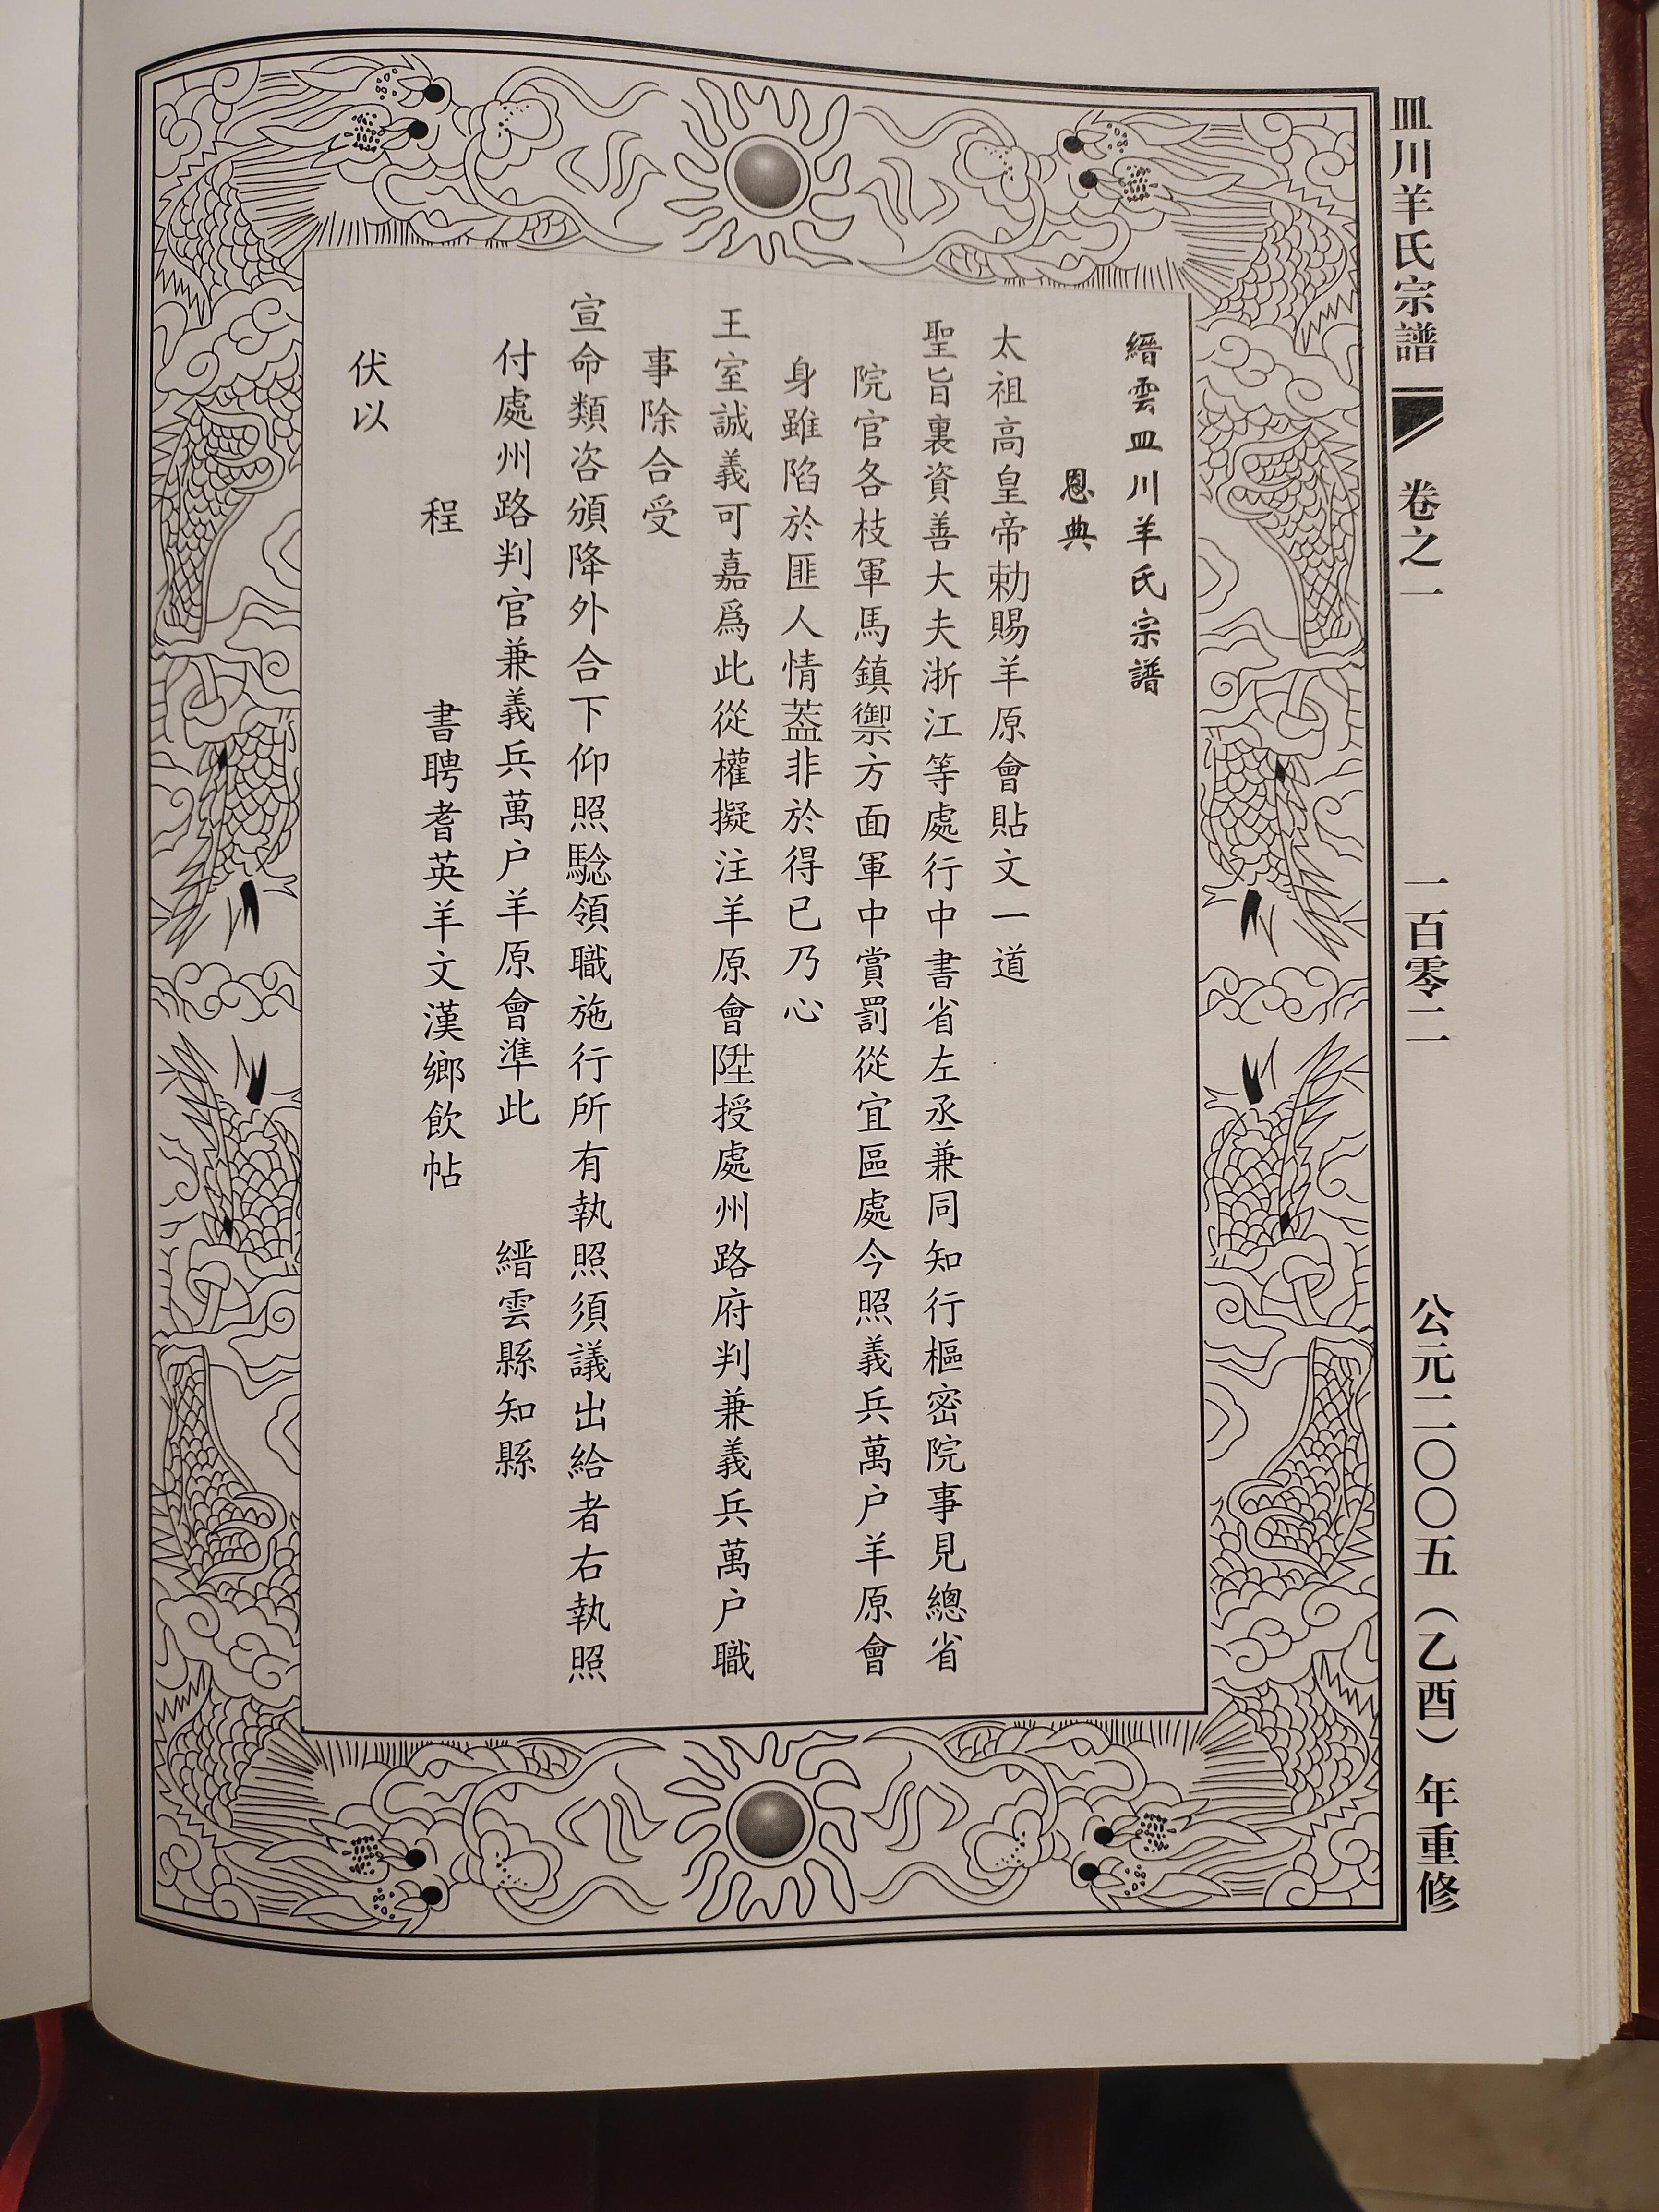 皿川羊氏宗譜 卷之一 一百零二 公元二〇〇五（乙酉）年重修
縉雲皿川羊氏宗譜
恩典
太祖高皇帝勅賜羊原會貼文一道
聖旨裏資善大夫浙江等處行中書省左丞兼同知行樞密院事見總省
院官各枝軍馬鎮禦方面軍中賞罰從宜區處今照義兵萬户羊原會
身雖陷於匪人情葢非於得已乃心
王室誠義可嘉爲此從權擬注羊原會陞授處州路府判兼義兵萬户職
事除合受
宣命類咨頒降外合下仰照驗領職施行所有執照須議出給者右執照
付處州路判官兼義兵萬户羊原會準此 縉雲縣知縣
程 書聘耆英羊文漢鄉飲帖
伏以